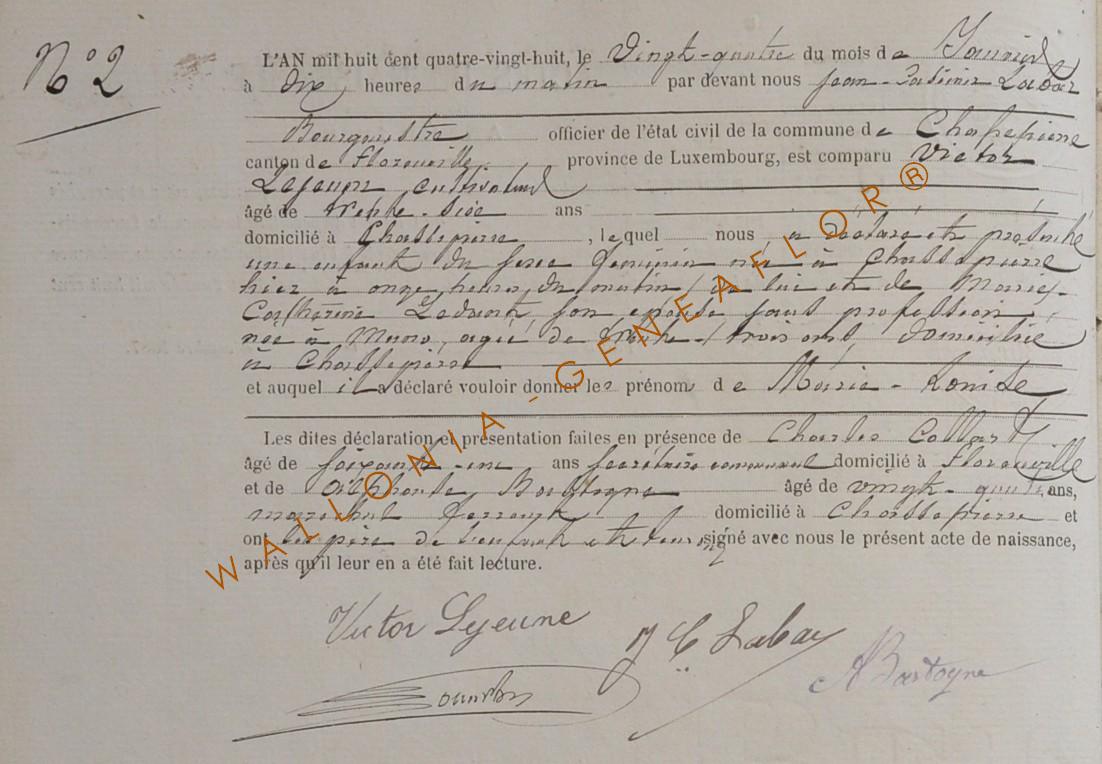 N° 2
L'AN mil huit cent quatre-vingt-huit, le Vingt-quatre du mois de Janvier
à dix heures du matin par devant nous Jean-Casimir Labar
Bourgmestre officier de l'état civil de la commune de Chassepierre
canton de Florenville province de Luxembourg, est comparu Victor
Lejeune, cultivateur
âgé de trente-six ans
domicilié à Chassepierre, lequel nous a déclaré et présenté
une enfant du sexe féminin née à Chassepierre
hier à onze heures du matin, de lui et de Marie-
Catherine son épouse sans profession,
née à Muno, agée de trente-trois ans, domiciliée
à Chassepierre
et auquel il a déclaré vouloir donner les prénoms de Marie-Louise
Les dites déclaration et présentation faites en présence de Charles
âgé de soixante-un ans secrétaire communal domicilié à Florenville
et de Bastogne âgé de vingt- ans,
marechal ferrant domicilié à Chassepierre et
ont les père de l'enfant et témoins signé avec nous le présent acte de naissance,
après qu'il leur en a été fait lecture.
Victor Lejeune
J C Labar
A Bastogne
WALLONIA - GENEAFLOR®